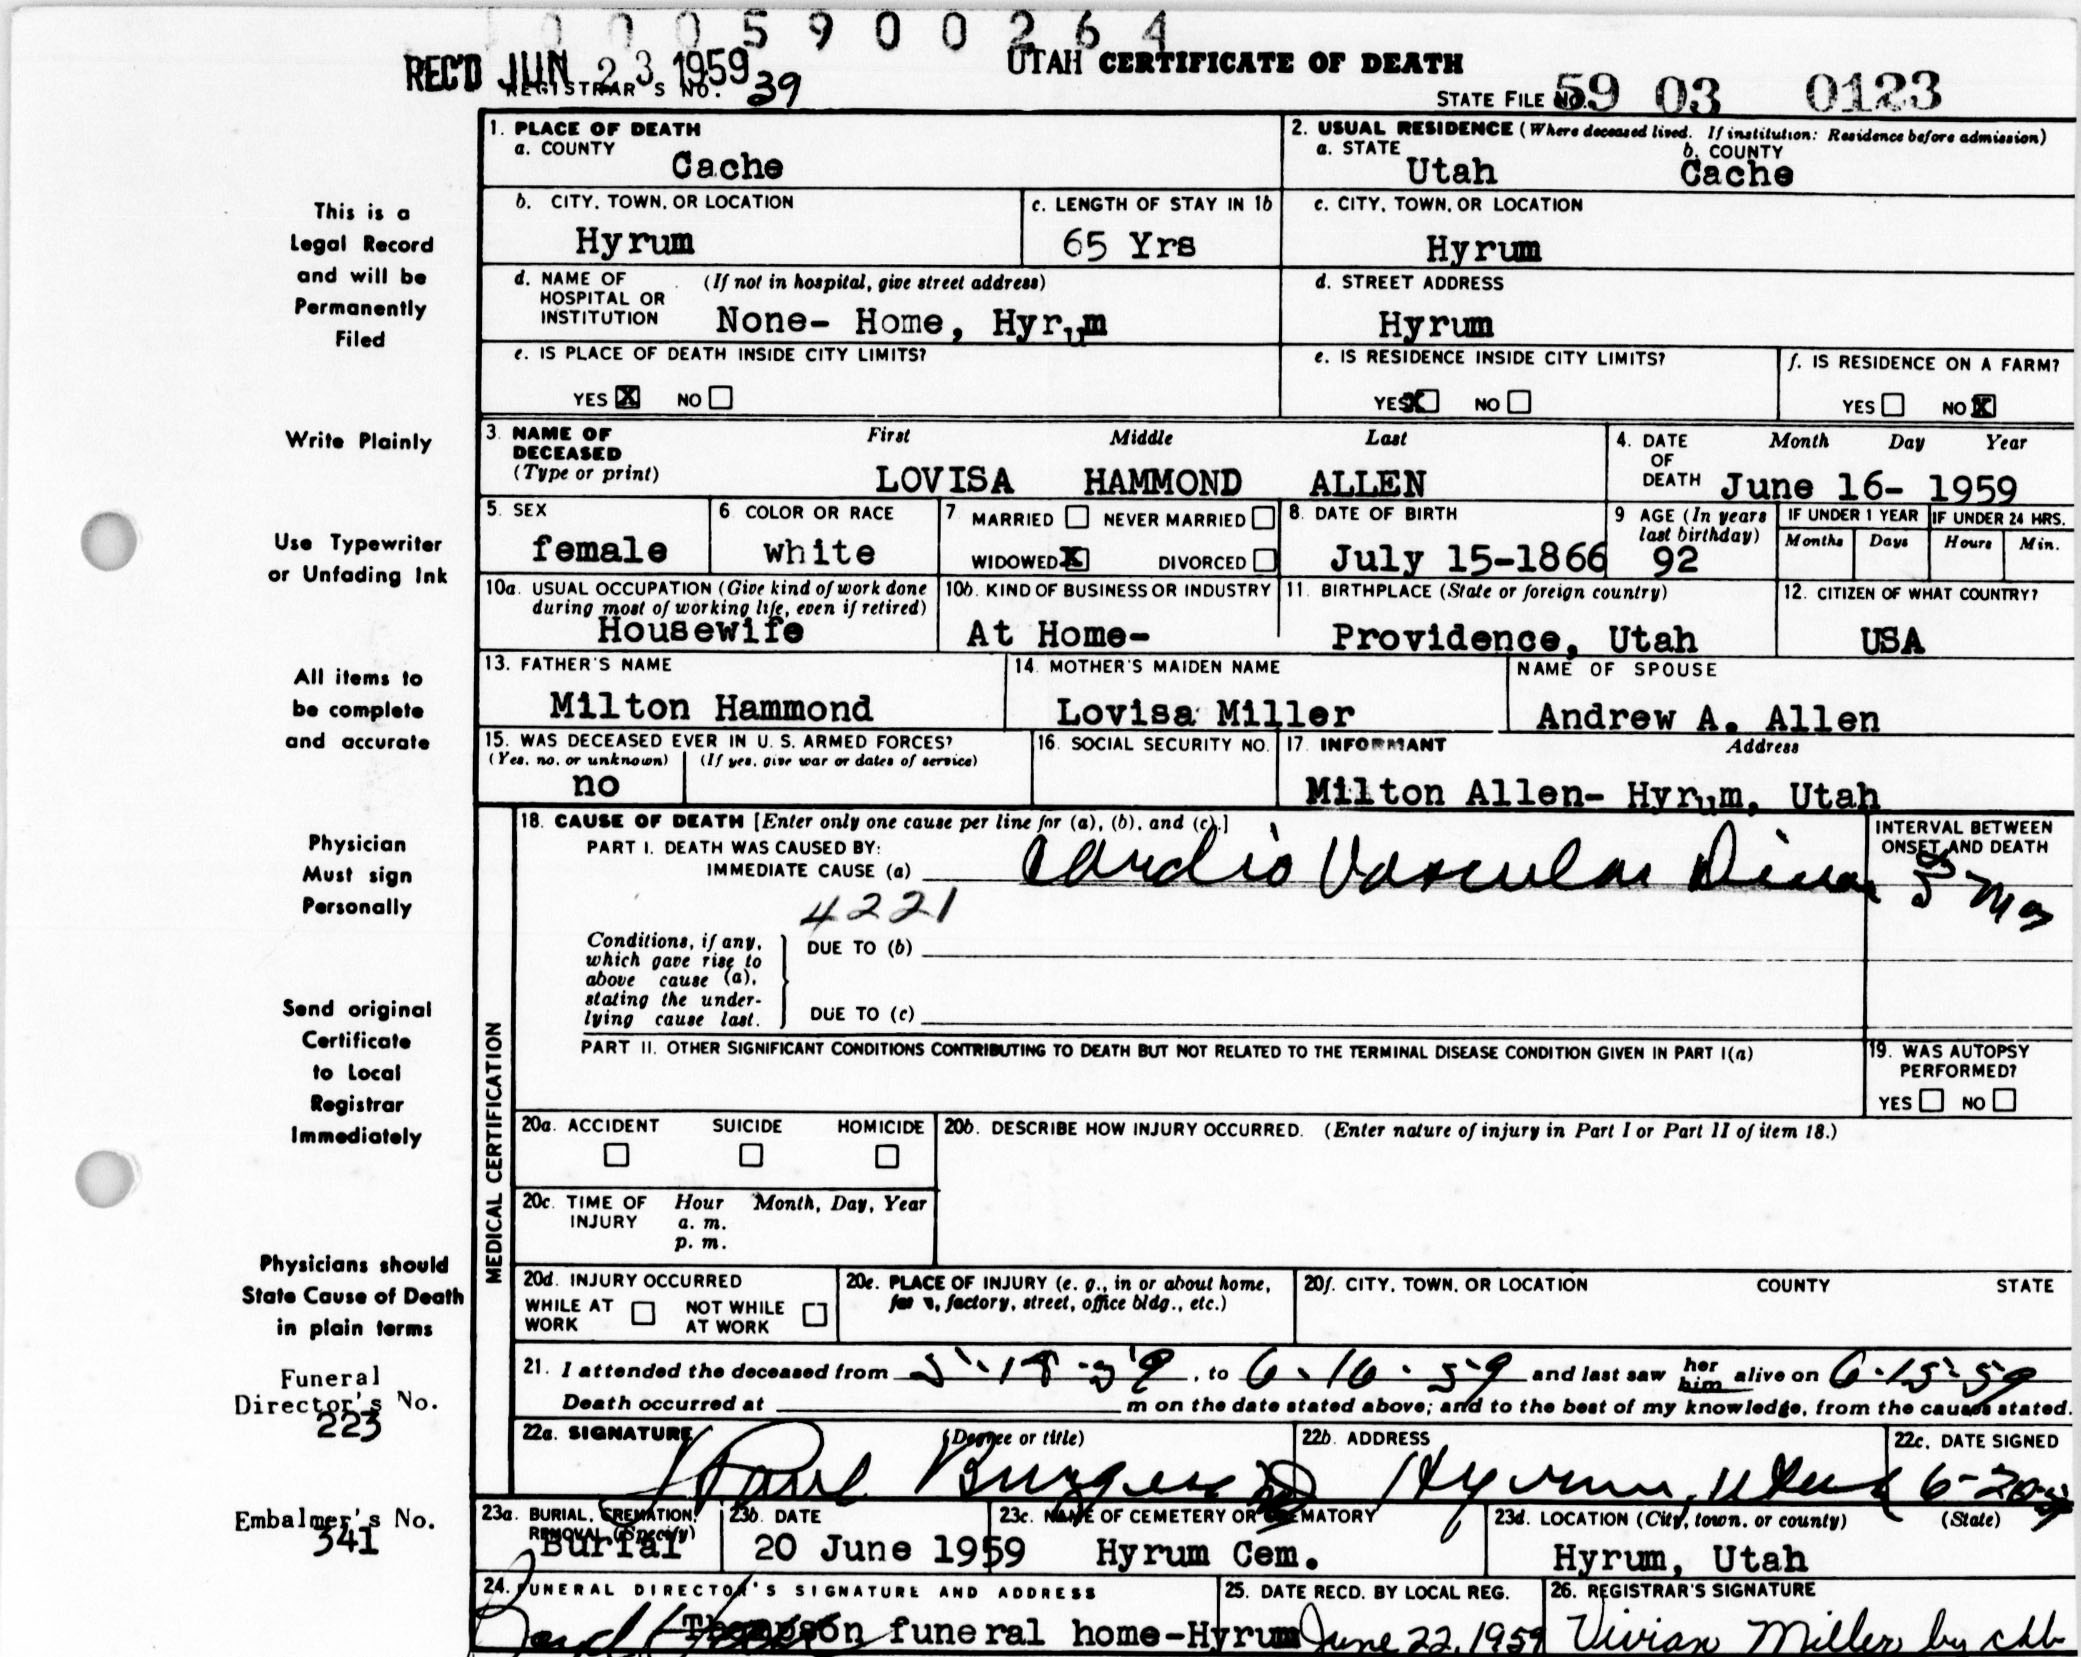 0 0 0 5 9 0 0 2 6 4
REC'D JUN 23 1959
REGISTRAR'S NO. 39
UTAH CERTIFICATE OF DEATH
STATE FILE NO. 59 03 0123
This is a
Legal Record
and will be
Permanently
Filed
Write Plainly
Use Typewriter
or Unfading Ink
All items to
be complete
and accurate
Physician
Must sign
Personally
Send original
Certificate
to Local
Registrar
Immediately
Physicians should
State Cause of Death
in plain terms
Funeral
Director's No.
223
Embalmer's No.
341
1. PLACE OF DEATH
a. COUNTY
Cache
2. USUAL RESIDENCE (Where deceased lived. If institution: Residence before admission)
a. STATE b. COUNTY
Utah Cache
b. CITY, TOWN, OR LOCATION
Hyrum
c. LENGTH OF STAY IN 1b
65 Yrs
c. CITY, TOWN, OR LOCATION
Hyrum
d. NAME OF (If not in hospital, give street address)
HOSPITAL OR
INSTITUTION None- Home, Hyrum
d. STREET ADDRESS
Hyrum
e. IS PLACE OF DEATH INSIDE CITY LIMITS?
YES X NO
e. IS RESIDENCE INSIDE CITY LIMITS?
YES X NO
f. IS RESIDENCE ON A FARM?
YES NO X
3. NAME OF First Middle Last
DECEASED
(Type or print) LOVISA HAMMOND ALLEN
4. DATE Month Day Year
OF
DEATH June 16- 1959
5. SEX
female
6 COLOR OR RACE
white
7 MARRIED NEVER MARRIED
WIDOWED X DIVORCED
8. DATE OF BIRTH
July 15-1866
9 AGE (In years
last birthday)
92
IF UNDER 1 YEAR IF UNDER 24 HRS.
Months Days Hours Min.
10a. USUAL OCCUPATION (Give kind of work done
during most of working life, even if retired)
Housewife
10b. KIND OF BUSINESS OR INDUSTRY
At Home-
11. BIRTHPLACE (State or foreign country)
Providence, Utah
12. CITIZEN OF WHAT COUNTRY?
USA
13. FATHER'S NAME
Milton Hammond
14. MOTHER'S MAIDEN NAME
Lovisa Miller
NAME OF SPOUSE
Andrew A. Allen
15. WAS DECEASED EVER IN U. S. ARMED FORCES?
(Yes, no, or unknown) (If yes, give war or dates of service)
no
16. SOCIAL SECURITY NO.
17. INFORMANT Address
Milton Allen- Hyrum, Utah
MEDICAL CERTIFICATION
18. CAUSE OF DEATH [Enter only one cause per line for (a), (b), and (c).]
PART I. DEATH WAS CAUSED BY:
IMMEDIATE CAUSE (a) Cardio Vascular Disease
INTERVAL BETWEEN
ONSET AND DEATH
4221
Conditions, if any,
which gave rise to
above cause (a),
stating the under-
lying cause last.
DUE TO (b)
DUE TO (c)
PART II. OTHER SIGNIFICANT CONDITIONS CONTRIBUTING TO DEATH BUT NOT RELATED TO THE TERMINAL DISEASE CONDITION GIVEN IN PART I(a)
19. WAS AUTOPSY
PERFORMED?
YES NO
20a. ACCIDENT SUICIDE HOMICIDE
20b. DESCRIBE HOW INJURY OCCURRED. (Enter nature of injury in Part I or Part II of item 18.)
20c. TIME OF Hour Month, Day, Year
INJURY a. m.
p. m.
20d. INJURY OCCURRED
WHILE AT NOT WHILE
WORK AT WORK
20e. PLACE OF INJURY (e. g., in or about home,
farm, factory, street, office bldg., etc.)
20f. CITY, TOWN, OR LOCATION COUNTY STATE
21. I attended the deceased from 5-18-59, to 6-16-59 and last saw her him alive on 6-15-59
Death occurred at m on the date stated above; and to the best of my knowledge, from the causes stated.
22a. SIGNATURE (Degree or title)
Paul Burgess
22b. ADDRESS
Hyrum, Utah
22c. DATE SIGNED
6-20-59
23a. BURIAL, CREMATION,
REMOVAL (Specify)
Burial
23b. DATE
20 June 1959
23c. NAME OF CEMETERY OR CREMATORY
Hyrum Cem.
23d. LOCATION (City, town, or county) (State)
Hyrum, Utah
24. FUNERAL DIRECTOR'S SIGNATURE AND ADDRESS
Thompson funeral home-Hyrum
25. DATE RECD. BY LOCAL REG.
June 22, 1959
26. REGISTRAR'S SIGNATURE
Vivian Miller by chb